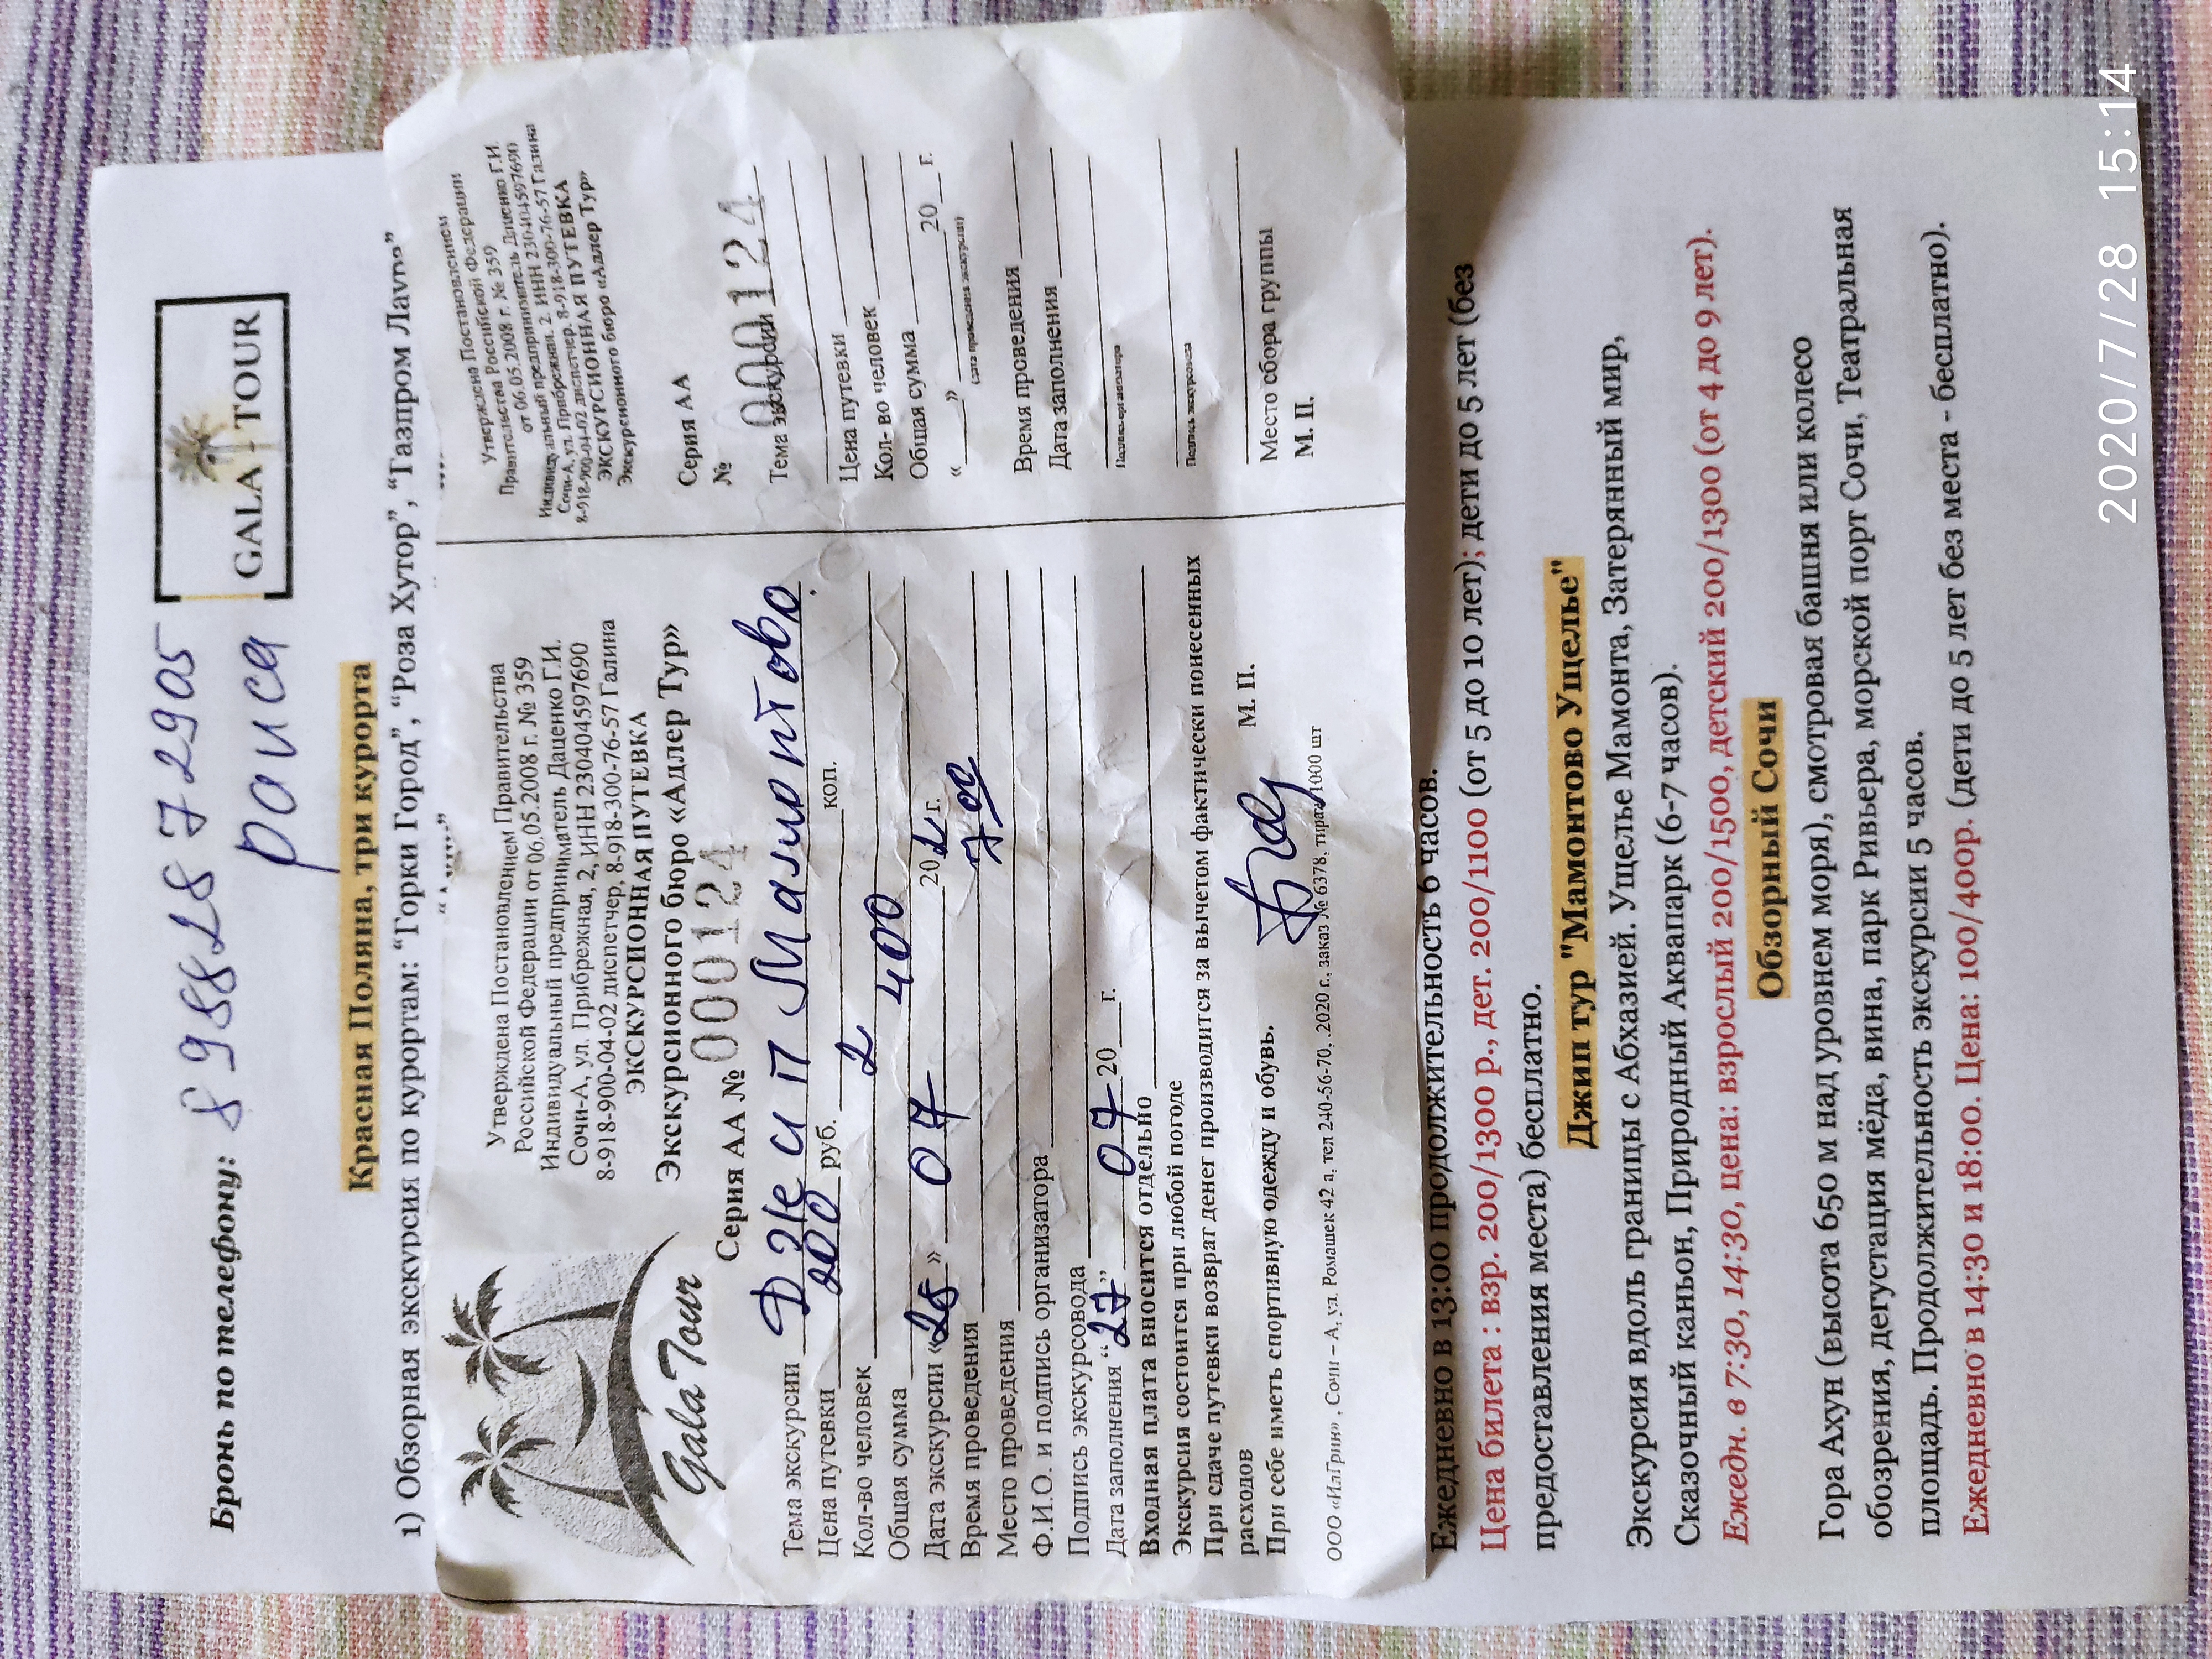 Бронь по телефону: 89882872905
раиса
GALA TOUR
Красная Поляна, три курорта
1) Обзорная экскурсия по курортам: “Горки Город”, “Роза Хутор”, “Газпром Лаура”
Утверждена Постановлением Правительства
Российской Федерации от 06.05.2008 г. № 359
Индивидуальный предприниматель Даценко Г.И.
Сочи-А, ул. Прибрежная, 2, ИНН 230404597690
8-918-900-04-02 диспетчер, 8-918-300-76-57 Галина
ЭКСКУРСИОННАЯ ПУТЕВКА
Экскурсионного бюро «Адлер Тур»
Серия АА № 000124
Gala Tour
Тема экскурсии Джип Мамонтово
Цена путевки 200 руб. коп.
Кол-во человек 2
Общая сумма 400
Дата экскурсии «28» 07 20 г.
Время проведения 7 00
Место проведения
Ф.И.О. и подпись организатора
Подпись экскурсовода
Дата заполнения “27” 07 20 г.
Входная плата вносится отдельно
Экскурсия состоится при любой погоде
При сдаче путевки возврат денег производится за вычетом фактически понесенных
расходов М. П.
При себе иметь спортивную одежду и обувь.
ООО «ИлГрин» , Сочи – А, ул. Ромашек 42 а, тел 240-56-70, .2020 г., заказ № 6378, тираж 1000 шт
Утверждена Постановлением
Правительства Российской Федерации
от 06.05.2008 г. № 359
Индивидуальный предприниматель Даценко Г.И.
Сочи-А, ул. Прибрежная. 2. ИНН 230404597690
8-918-900-04-02 диспетчер. 8-918-300-76-57 Галина
ЭКСКУРСИОННАЯ ПУТЕВКА
Экскурсионного бюро «Адлер Тур»
Серия АА
№ 000124
Тема экскурсии
Цена путевки
Кол- во человек
Общая сумма
« » 20 г.
(дата проведения экскурсии)
Время проведения
Дата заполнения
Подпись организатора
Подпись экскурсовода
Место сбора группы
М. П.
Ежедневно в 13:00 продолжительность 6 часов.
Цена билета : взр. 200/1300 р., дет. 200/1100 (от 5 до 10 лет); дети до 5 лет (без
предоставления места) бесплатно.
Джип тур "Мамонтово Ущелье"
Экскурсия вдоль границы с Абхазией. Ущелье Мамонта, Затерянный мир,
Сказочный каньон, Природный Аквапарк (6-7 часов).
Ежедн. в 7:30, 14:30, цена: взрослый 200/1500, детский 200/1300 (от 4 до 9 лет).
Обзорный Сочи
Гора Ахун (высота 650 м над уровнем моря), смотровая башня или колесо
обозрения, дегустация мёда, вина, парк Ривьера, морской порт Сочи, Театральная
площадь. Продолжительность экскурсии 5 часов.
Ежедневно в 14:30 и 18:00. Цена: 100/400р. (дети до 5 лет без места - бесплатно).
2020/7/28 15:14